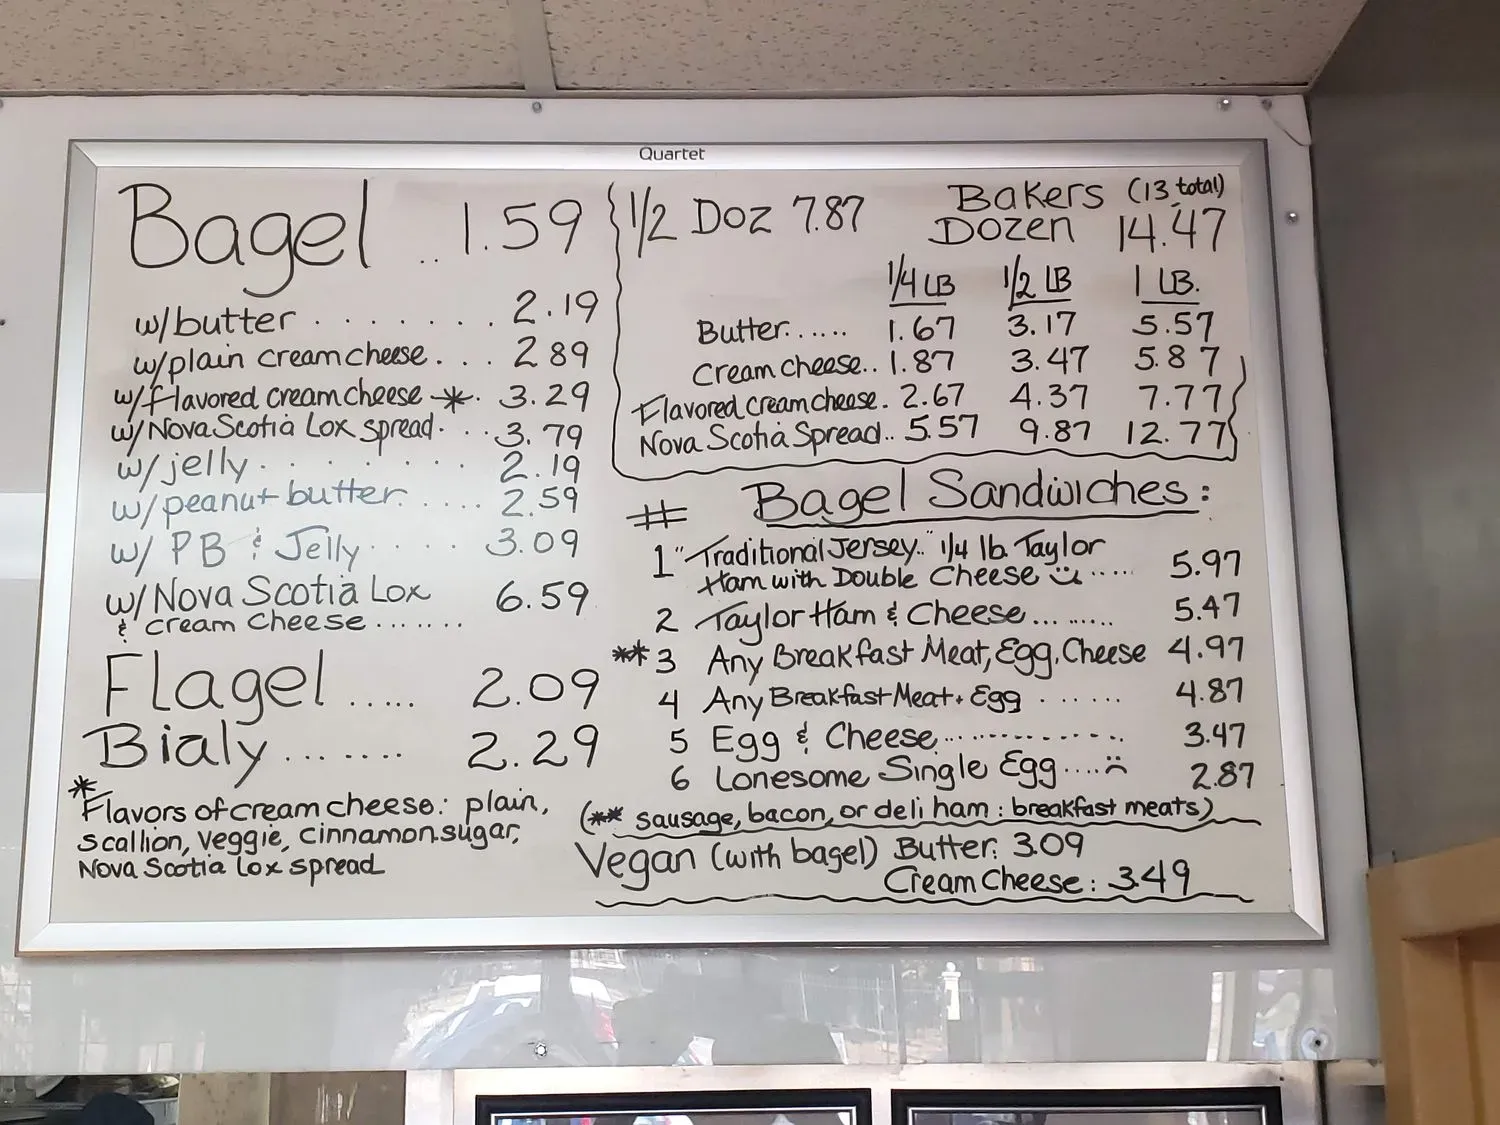 Quartet
Bagel .. 1.59
w/butter . . . . . . . 2.19
w/plain cream cheese . . . 2 89
w/flavored cream cheese * . 3.29
w/Nova Scotia Lox spread . . . 3.79
w/jelly . . . . . . . . 2.19
w/peanut butter . . . . . 2.59
w/ PB & Jelly . . . . . 3.09
w/ Nova Scotia Lox 6.59
& cream cheese .......
Flagel ..... 2.09
Bialy ....... 2.29
*
Flavors of cream cheese: plain,
scallion, veggie, cinnamon.sugar,
Nova Scotia Lox spread
1/2 Doz 7.87
Bakers (13 total)
Dozen 14.47
1/4 LB 1/2 LB 1 LB.
Butter...... 1.67 3.17 5.57
Cream cheese.. 1.87 3.47 5.87
Flavored cream cheese. 2.67 4.37 7.77
Nova Scotia Spread.. 5.57 9.87 12.77
# Bagel Sandwiches:
1 "Traditional Jersey.." 1/4 lb. Taylor
Ham with Double Cheese ..... 5.97
2 Taylor Ham & Cheese......... 5.47
** 3 Any Breakfast Meat, Egg, Cheese 4.97
4 Any Breakfast Meat + Egg ...... 4.87
5 Egg & Cheese............... 3.47
6 Lonesome Single Egg.... 2.87
(** sausage, bacon, or deli ham : breakfast meats)
Vegan (with bagel) Butter: 3.09
Cream Cheese: 3.49